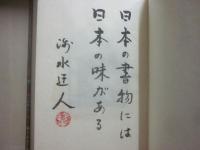 日本の書物には
日本の味がある
海水匠人